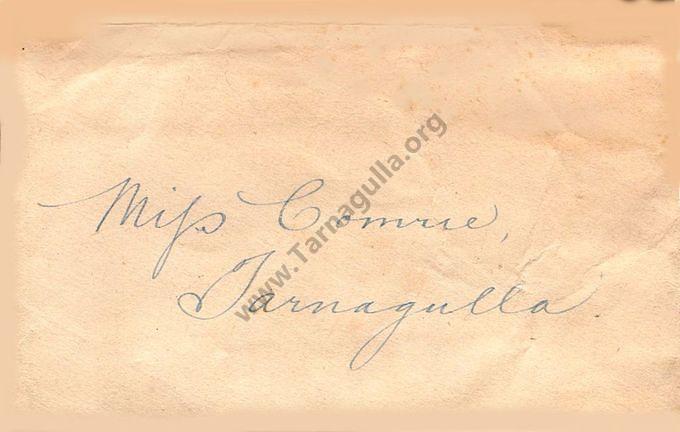 Miss Comrie,
Tarnagulla
www.Tarnagulla.org